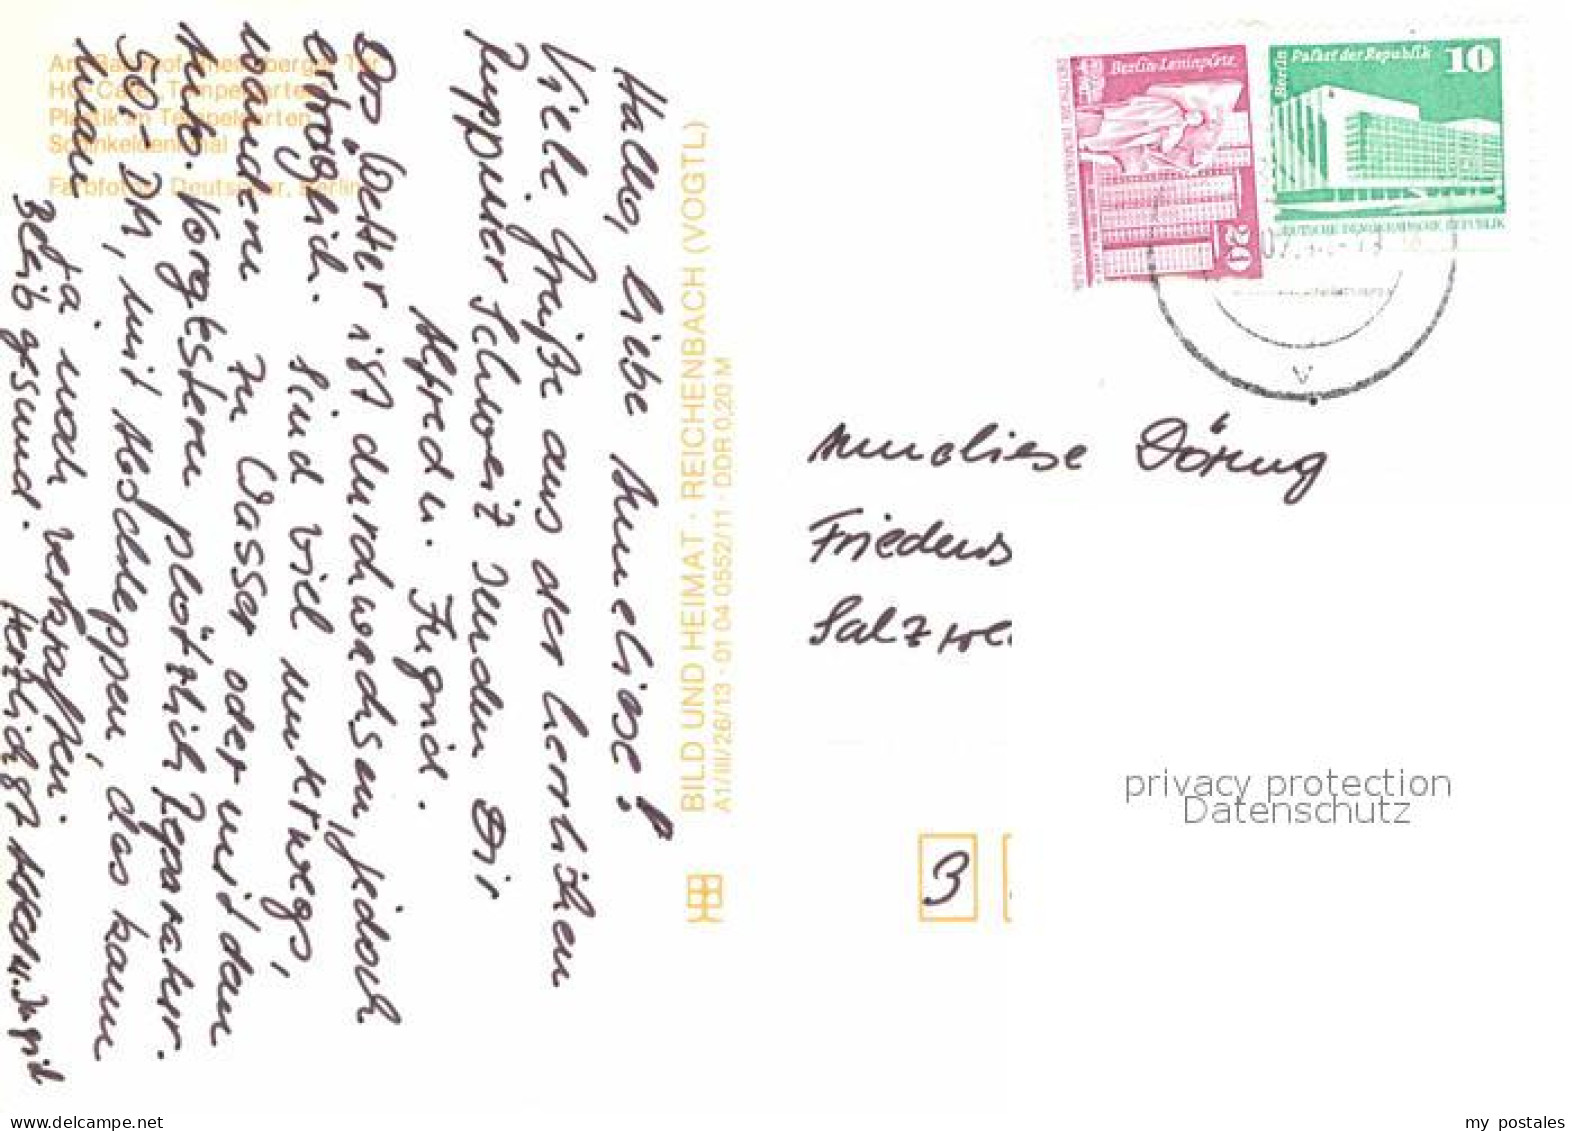 Am Bahnhof Rheinsberger Tor
HO-Café, Tempelgarten
Plastik im Tempelgarten
Schinkeldenkmal
Farbfotos: Deutscher, Berlin
Hallo, liebe Anneliese!
Viele Grüße aus der herrlichen
Ruppiner Schweiz senden Dir
Alfred u. Ingrid.
Das Wetter ist durchwachsen, jedoch
erträglich. Sind viel unterwegs,
wandern zu Wasser oder mit dem
Auto. Vorgestern plötzlich Reparatur.
50,- DM, mit Abschleppen, das kann
man
ja noch verkraften.
Bleib gesund. Herzlichst Alfred u. Ingrid
BILD UND HEIMAT · REICHENBACH (VOGTL)
A1/III/26/13 · 01 04 0552/11 · DDR 0,20 M
Berlin-Leninplatz
20
DEUTSCHE DEMOKRATISCHE REPUBLIK
Berlin Palast der Republik 10
DEUTSCHE DEMOKRATISCHE REPUBLIK
v
Anneliese Döring
Friedens
Salzwe
privacy protection
Datenschutz
3
my postales